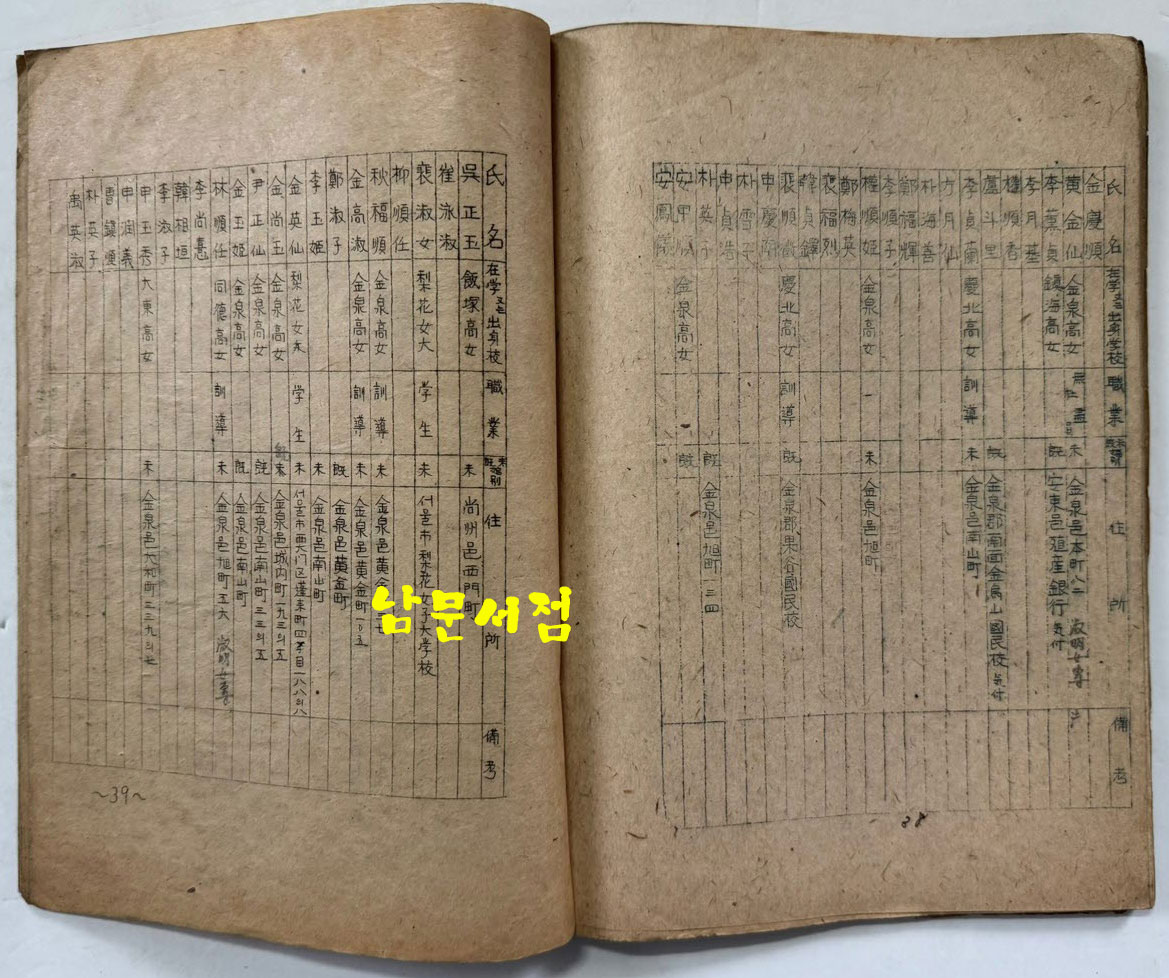 氏名 在学又는出身学校 職業 住所 備考
金慶順
黃金仙 金泉高女 未 金泉邑本町八二 淑明女專
李薰貞 鎭海高女 既 安東邑殖産銀行気付
李月基
權順香
盧斗里 既 金泉郡南面金烏山國民校気付
李貞蘭 慶北高女 訓導 金泉邑南山町
方月仙
朴海善
鄭福輝
李順子
權順姬 金泉高女 未 金泉邑旭町
鄭梅英
裵福烈
韓貞鎭
裵順 慶北高女 訓導 既 金泉郡果谷國民校
申慶
朴雪子
申貞浩
朴英子 既 金泉邑旭町一三四
安甲 金泉高女 既
安鳳儀
38
氏名 在学又는出身校 職業 住所 備考
吳正玉 飯塚高女 未 尚州邑西門町
崔泳淑
裵淑女 梨花女大 学生 未 서울市梨花女子大学校
柳順任
秋福順 金泉高女 訓導 未 金泉邑黃金
金高淑 金泉高女 訓導 未 金泉邑黃金町一0五
鄭淑子 既 金泉邑黃金町
李玉姬 未 金泉邑南山町
金英仙 梨花女大 学生 未 서울市西大门区蓬萊町四丁目一八八의八
金尚玉 金泉高女 未 金泉邑城内町一九三의五
尹正仙 金泉高女 既 金泉邑南山町三三의五
金玉姬 金泉高女 既 金泉邑南山町
林順任 同德高女 訓導 未 金泉邑旭町五六 淑明女專
李尚憙
韓相垣
李淑子
申玉秀 大東高女 未 金泉邑大和町三三九의七
申润義
曺鎭順
朴英子
禹英淑
~39~
남문서점